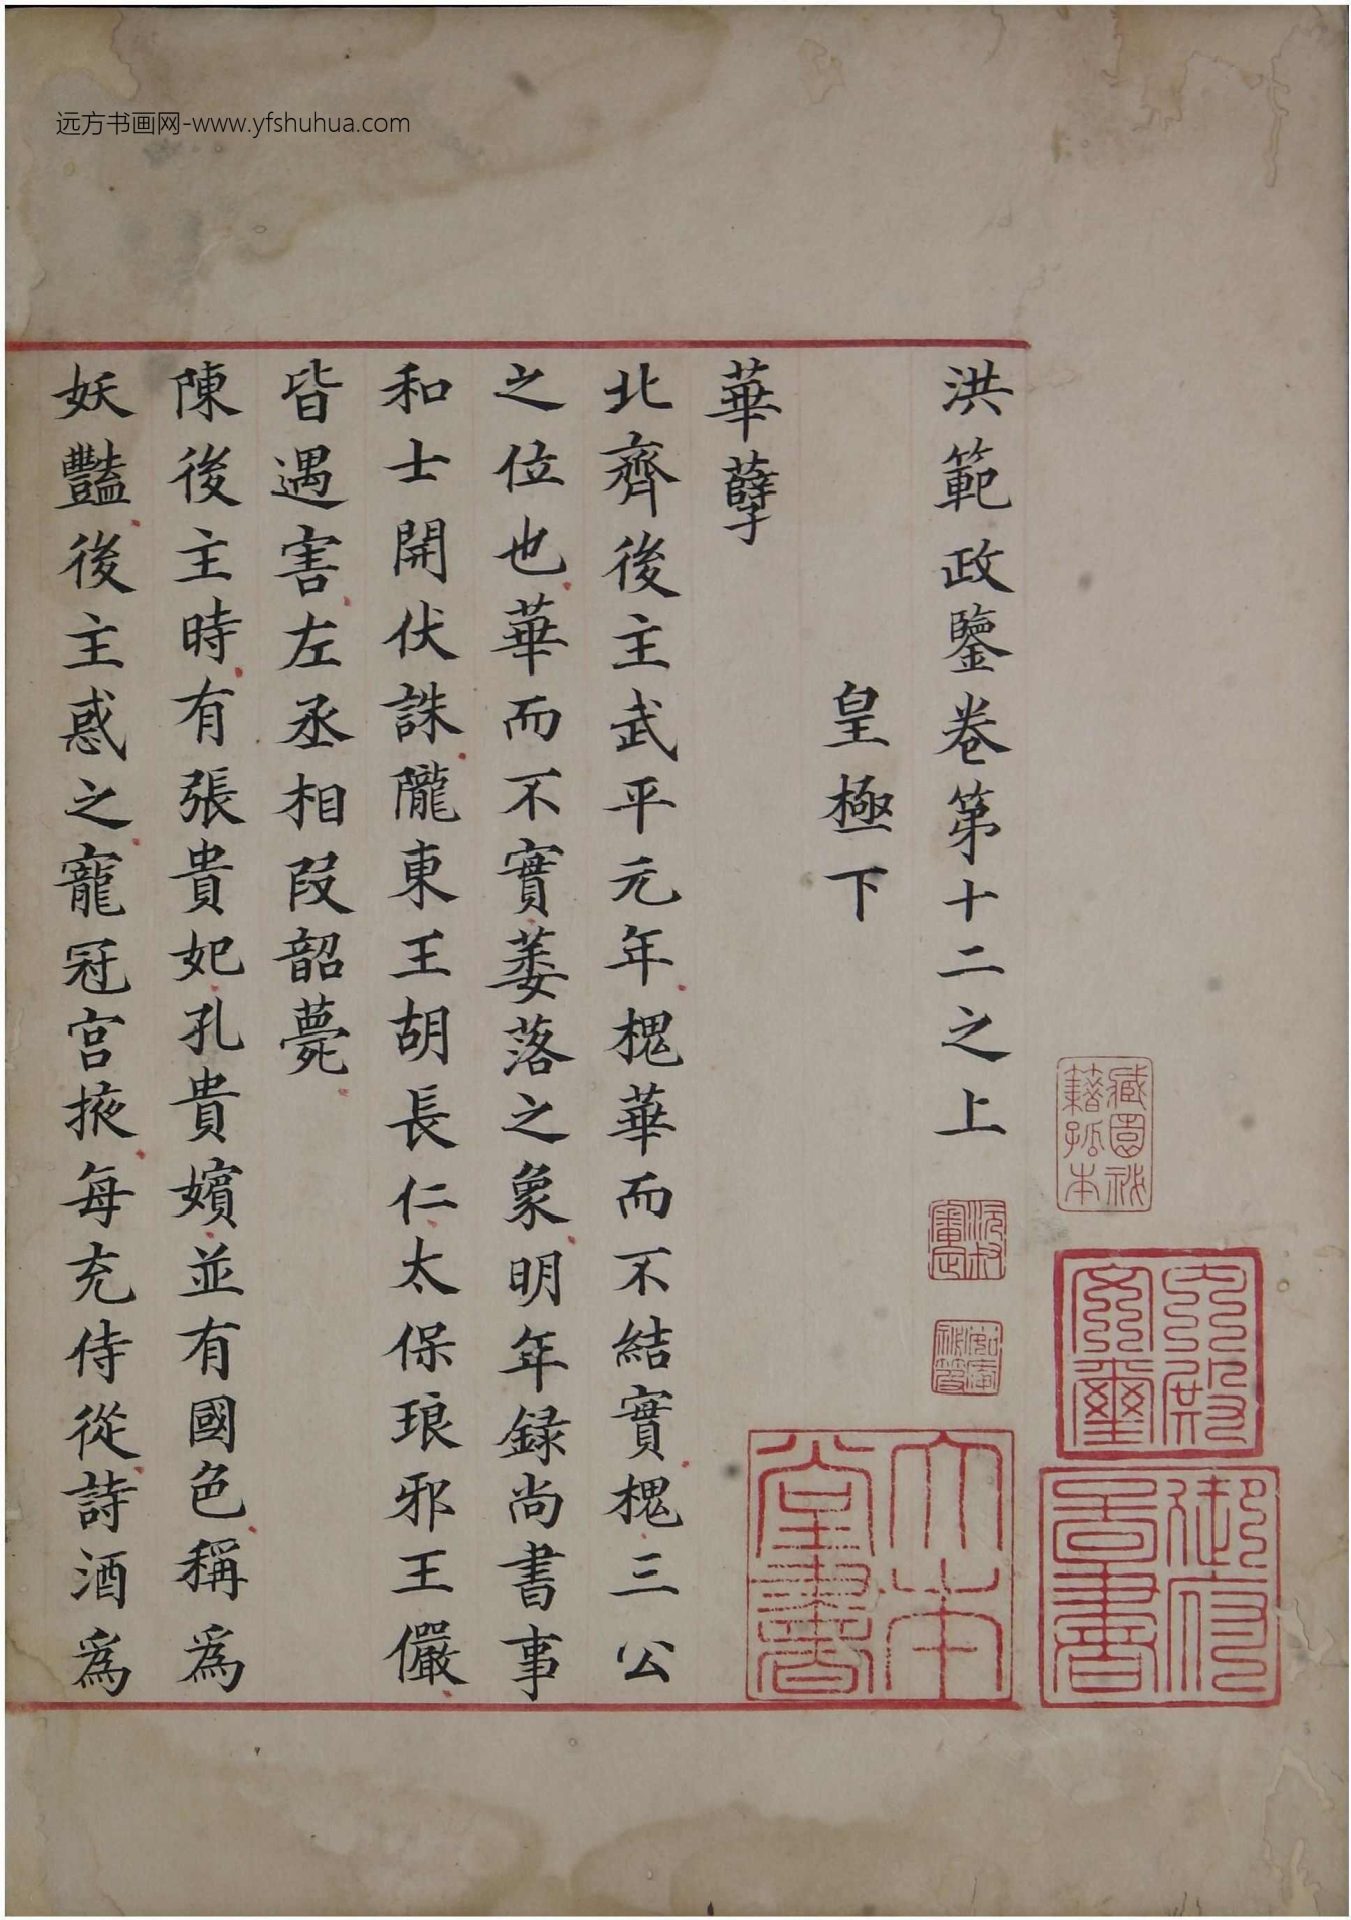 远方书画网-www.yfshuhua.com
洪範政鑒卷第十二之上
皇極下
華孽
北齊後主武平元年槐華而不結實槐三公
之位也華而不實萎落之象明年録尚書事
和士開伏誅隴東王胡長仁太保琅邪王儼
皆遇害左丞相段韶薨
陳後主時有張貴妃孔貴嬪並有國色稱為
妖豔後主惑之寵冠宮掖每充侍從詩酒為
臧園祕籍孤本
沅叔審定
內殿文璽
御府圖書
大本堂書